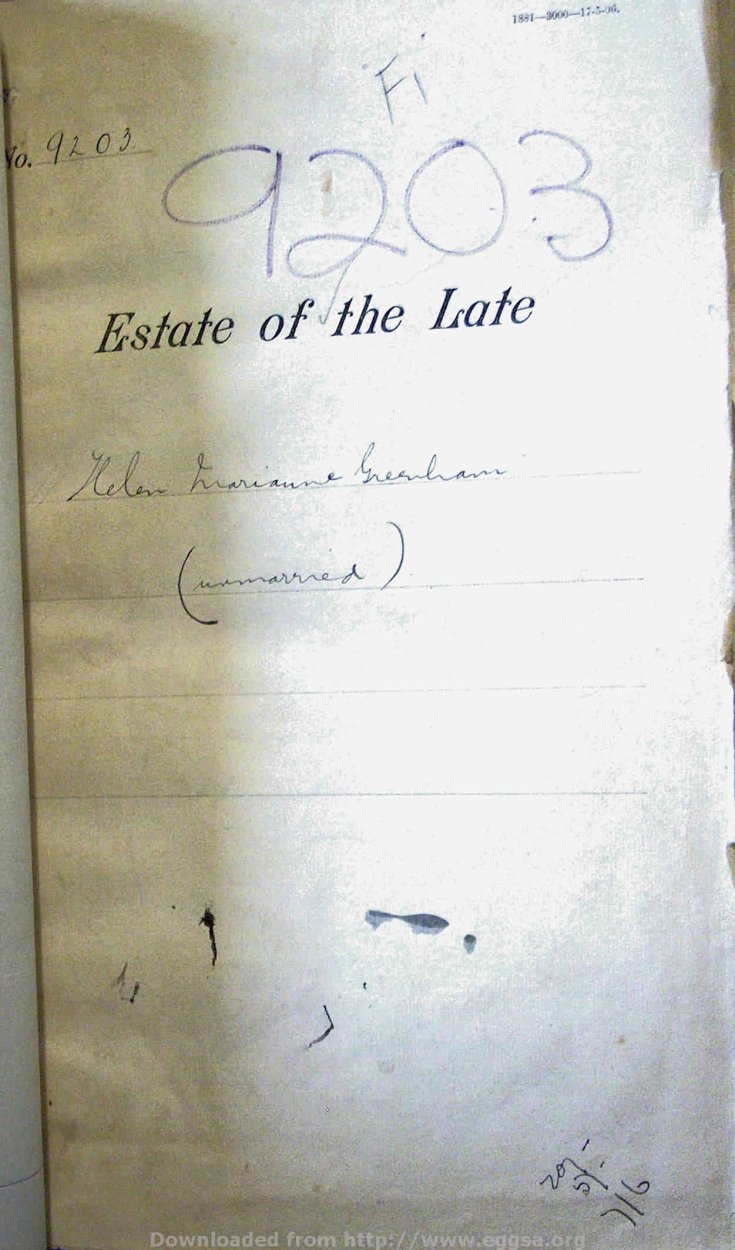 1881—3000—17-5-06.
Fi
No. 9203
9203
Estate of the Late
Helen Marianne Greenham
(unmarried)
20/-
5/-
7/6
Downloaded from http://www.eggsa.org